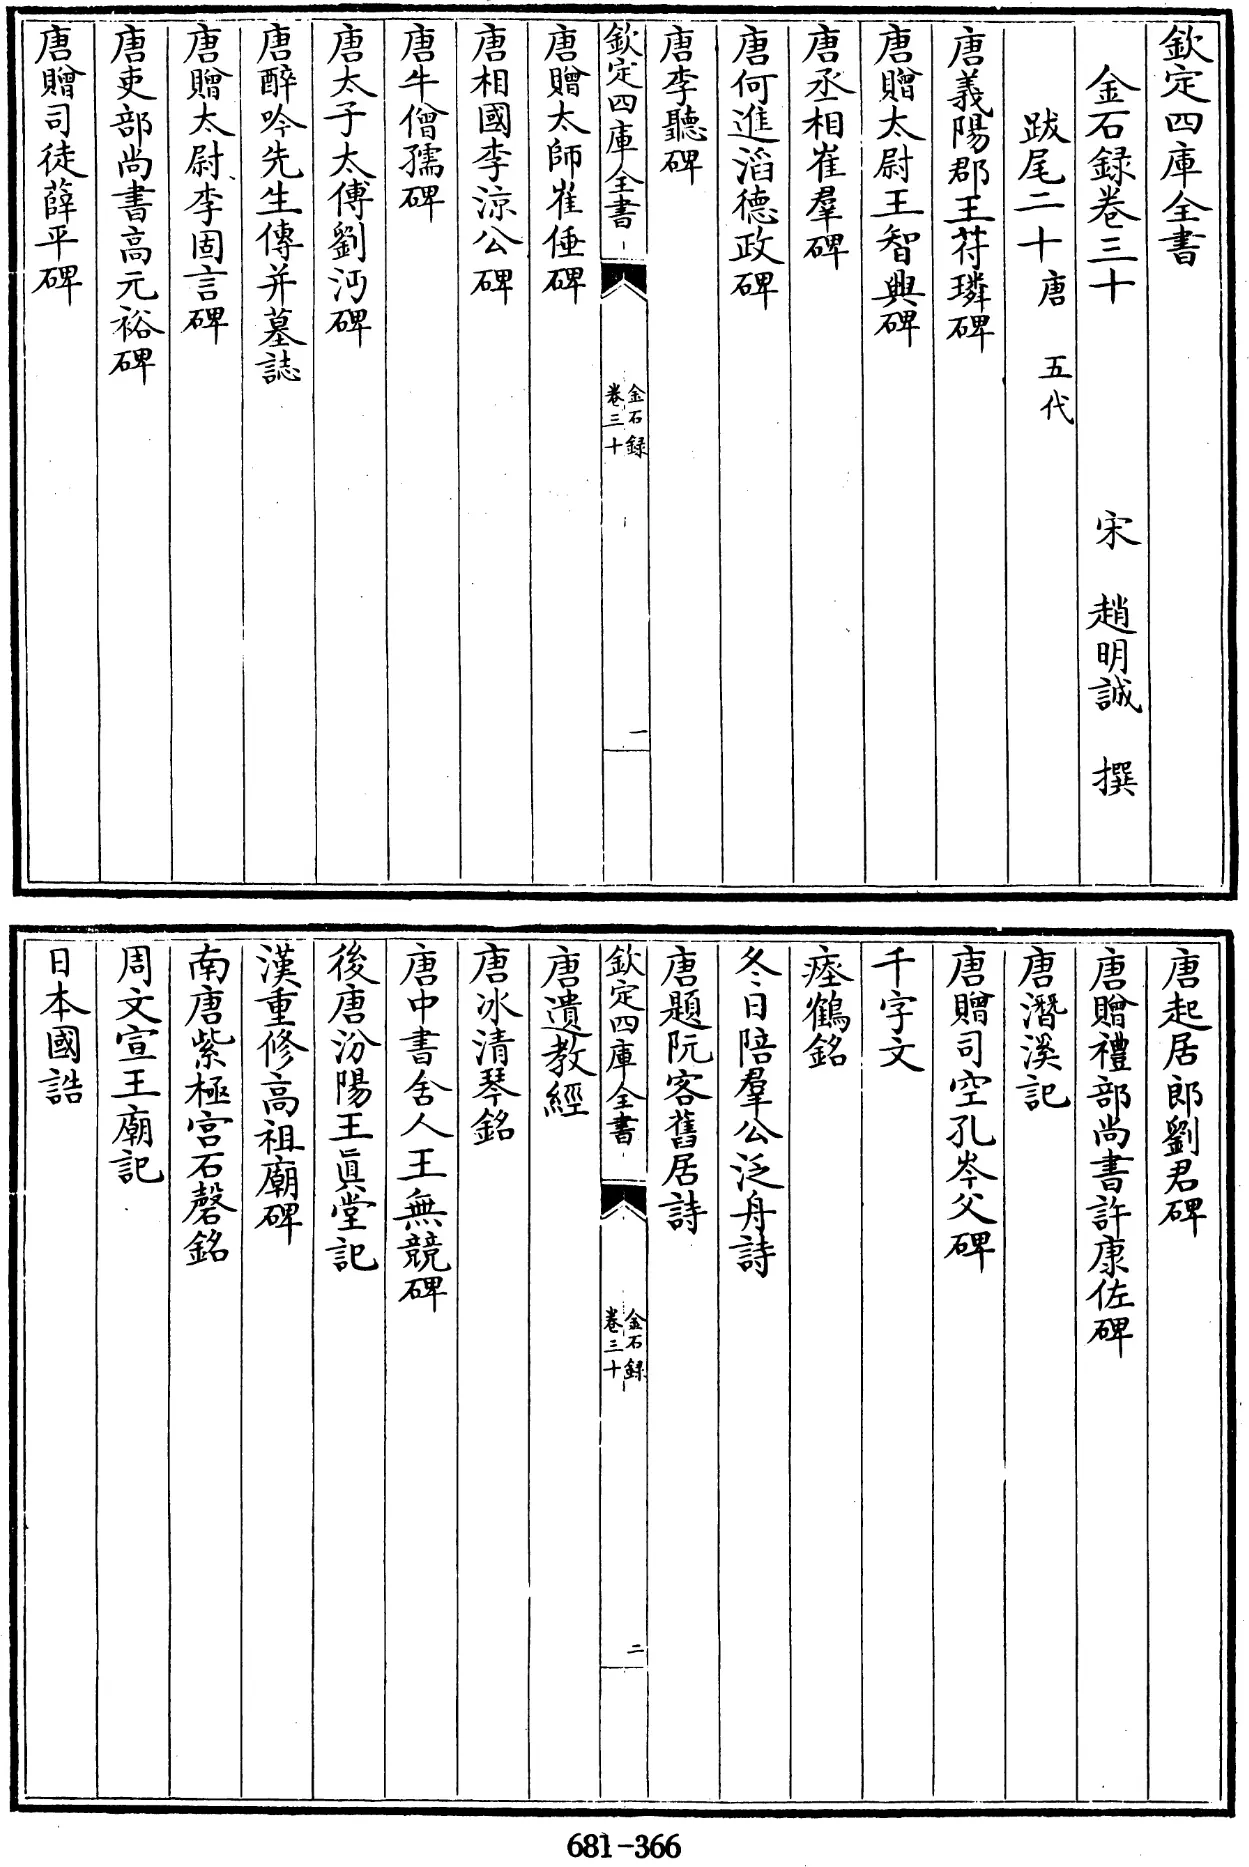 欽定四庫全書
金石録卷三十
宋 趙明誠 撰
跋尾二十 唐 五代
唐義陽郡王苻璘碑
唐贈太尉王智興碑
唐丞相崔羣碑
唐何進滔德政碑
唐李聽碑
欽定四庫全書
金石録
卷三十
一
唐贈太師崔倕碑
唐相國李涼公碑
唐牛僧孺碑
唐太子太傅劉沔碑
唐醉吟先生傳并墓誌
唐贈太尉李固言碑
唐吏部尚書高元裕碑
唐贈司徒薛平碑
唐起居郎劉君碑
唐贈禮部尚書許康佐碑
唐潛溪記
唐贈司空孔岑父碑
千字文
瘞鶴銘
冬日陪羣公泛舟詩
唐題阮客舊居詩
欽定四庫全書
金石録
卷三十
二
唐遺教經
唐冰清琴銘
唐中書舍人王無競碑
後唐汾陽王眞堂記
漢重修高祖廟碑
南唐紫極宮石磬銘
周文宣王廟記
日本國誥
681-366